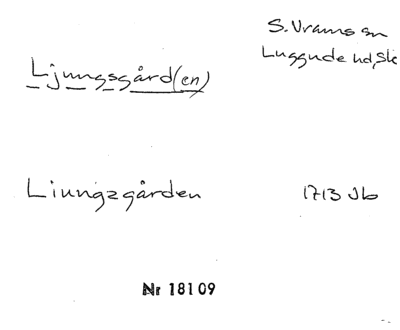 S. Vrams sn
Luggude hd, Sk
Ljungsgård(en)
Liungzgården 1713 Jb
Nr 18109